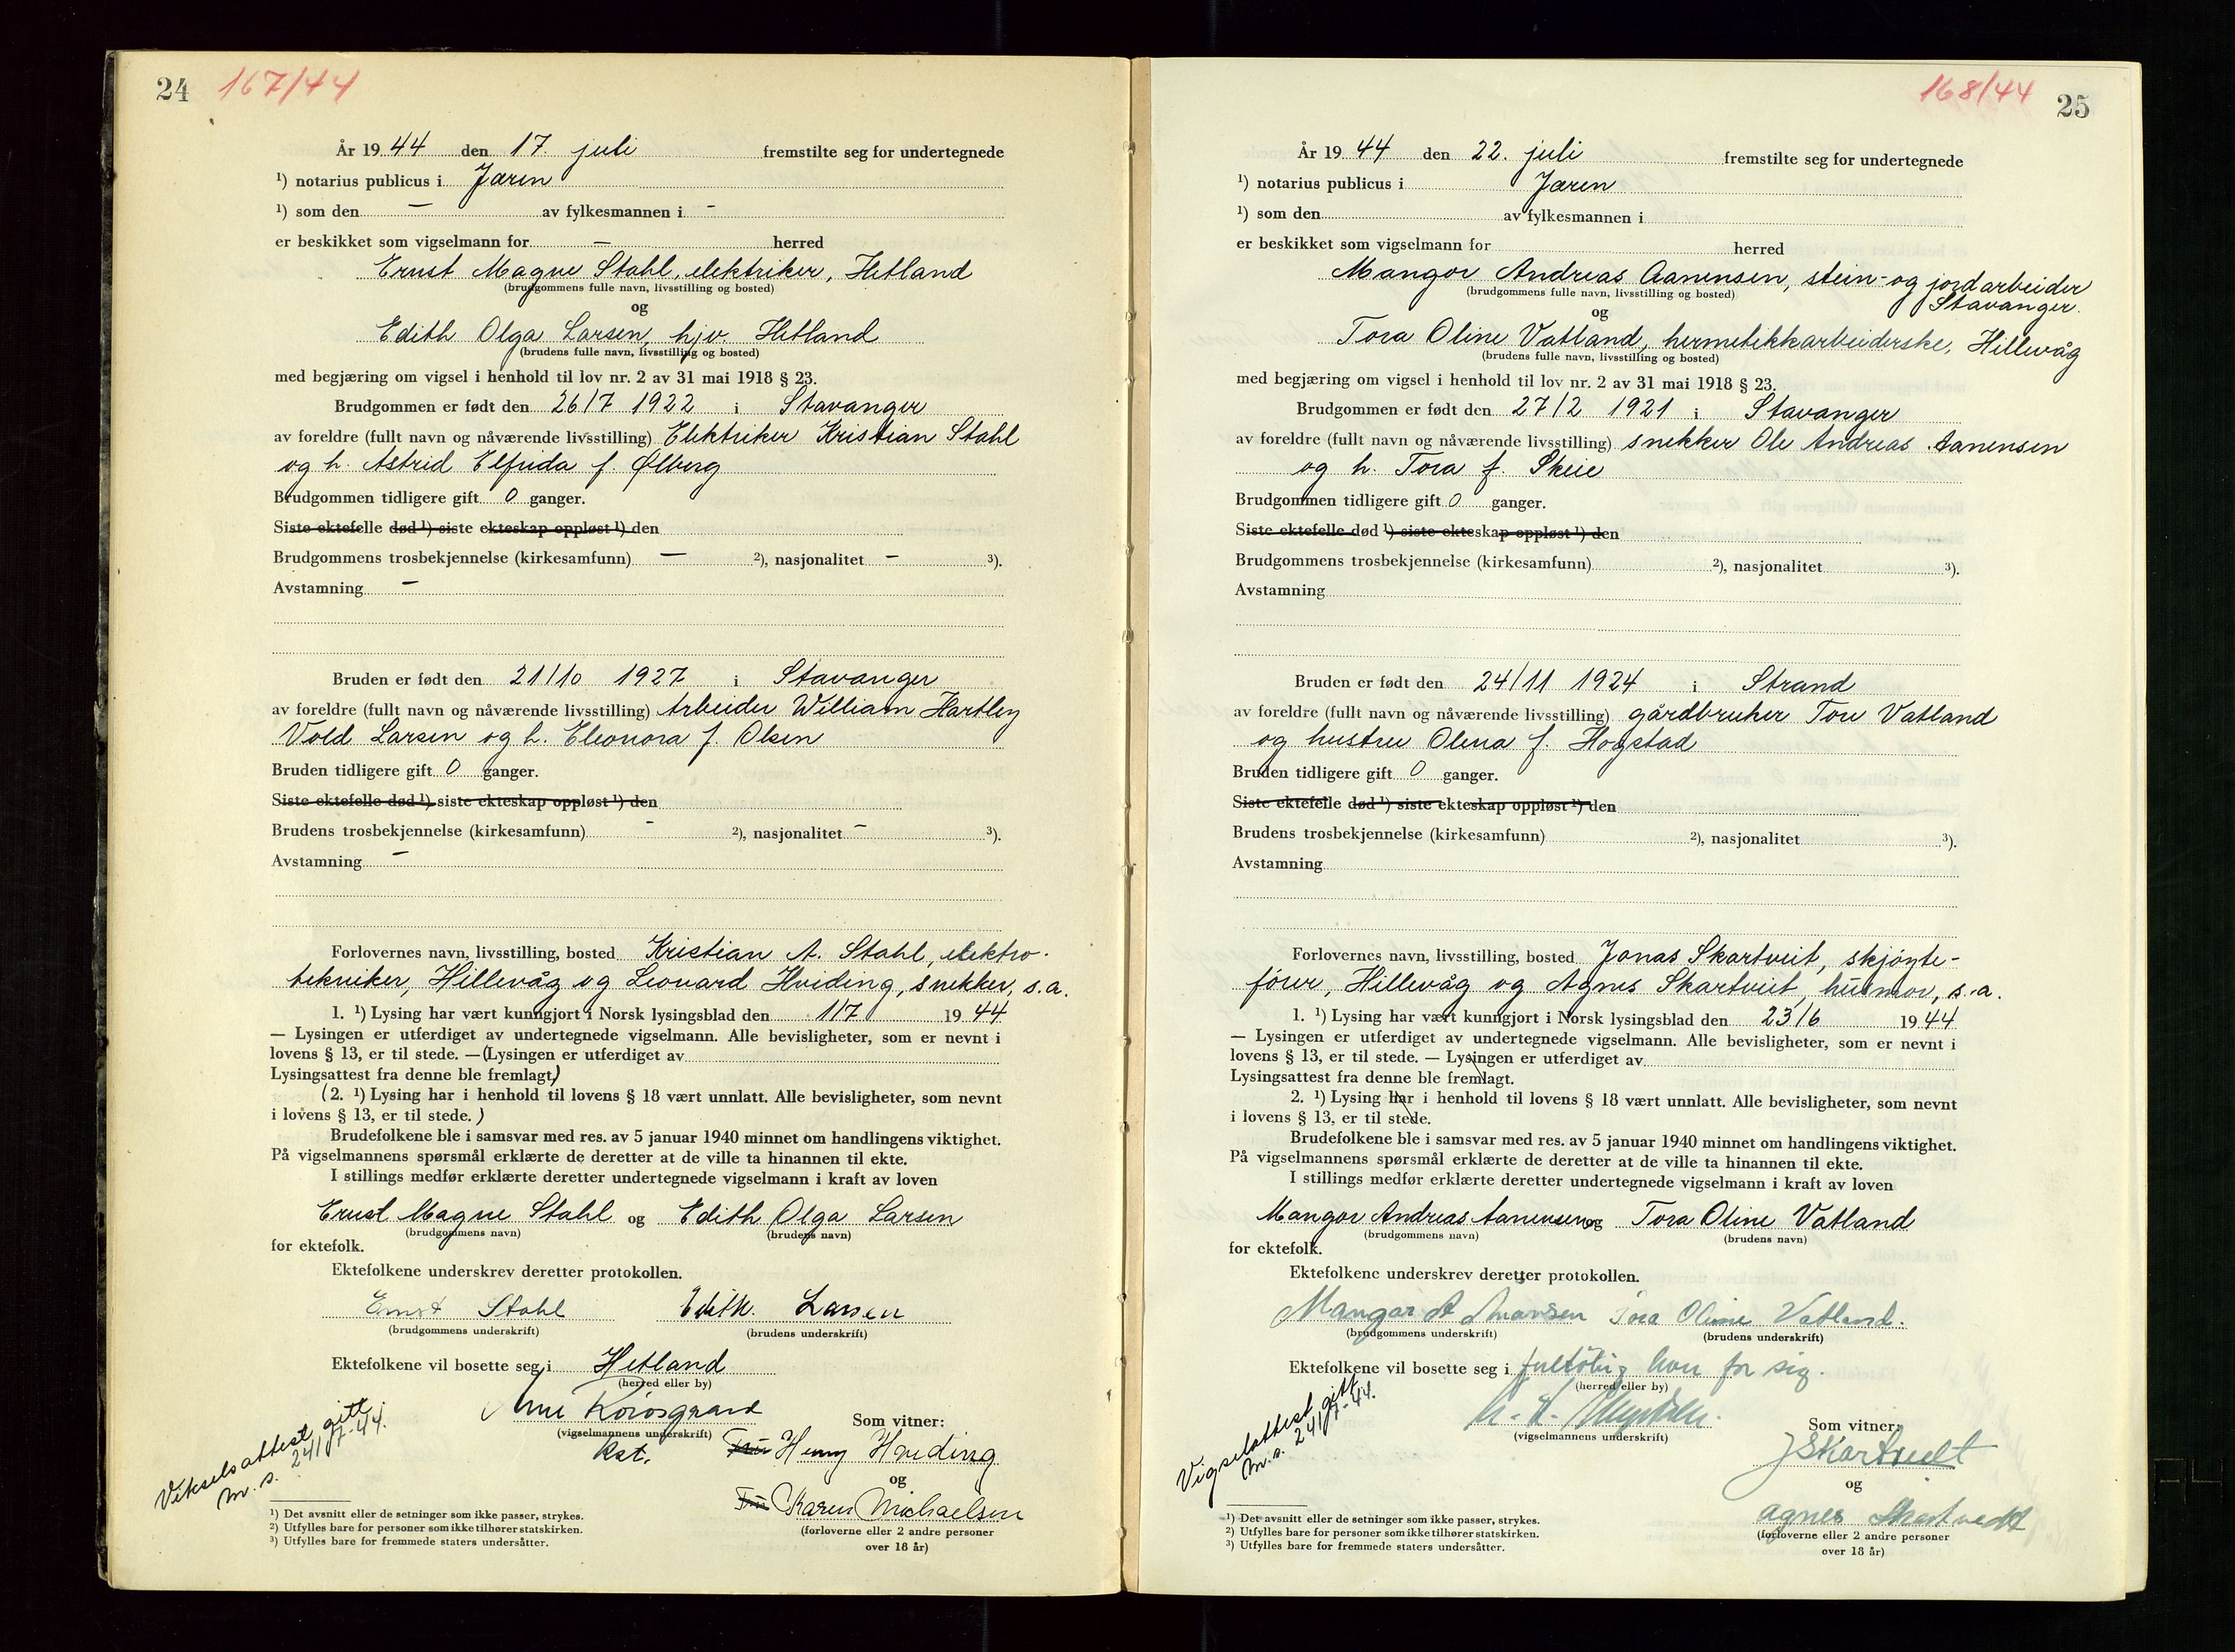 24 167/44
År 1944 den 17. juli fremstilte seg for undertegnede
¹) notarius publicus i Jæren
¹) som den — av fylkesmannen i -
er beskikket som vigselmann for — herred
Ernst Magne Stahl, elektriker, Hetland
(brudgommens fulle navn, livsstilling og bosted)
og
Edith Olga Larsen, hjv. Hetland
(brudens fulle navn, livsstilling og bosted)
med begjæring om vigsel i henhold til lov nr. 2 av 31 mai 1918 § 23.
Brudgommen er født den 26/7 1922 i Stavanger
av foreldre (fullt navn og nåværende livsstilling) Elektriker Kristian Stahl
og h. Astrid Elfrida f. Ølberg
Brudgommen tidligere gift 0 ganger.
Siste ektefelle død ¹) siste ekteskap oppløst ¹) den
Brudgommens trosbekjennelse (kirkesamfunn) — ²), nasjonalitet — ³).
Avstamning —
Bruden er født den 21/10 1927 i Stavanger
av foreldre (fullt navn og nåværende livsstilling) Arbeider William Hartley
Vold Larsen og h. Eleonora f. Olsen
Bruden tidligere gift 0 ganger.
Siste ektefelle død ¹) siste ekteskap oppløst ¹) den
Brudens trosbekjennelse (kirkesamfunn) - ²), nasjonalitet — ³).
Avstamning —
Forlovernes navn, livsstilling, bosted Kristian A. Stahl, elektro-
tekniker, Hillevåg og Leonard Hviding, snekker, s.a.
1. ¹) Lysing har vært kunngjort i Norsk lysingsblad den 1/7 1944
— Lysingen er utferdiget av undertegnede vigselmann. Alle bevisligheter, som er nevnt i
lovens § 13, er til stede. — (Lysingen er utferdiget av
Lysingsattest fra denne ble fremlagt.)
(2. ¹) Lysing har i henhold til lovens § 18 vært unnlatt. Alle bevisligheter, som nevnt
i lovens § 13, er til stede.)
Brudefolkene ble i samsvar med res. av 5 januar 1940 minnet om handlingens viktighet.
På vigselmannens spørsmål erklærte de deretter at de ville ta hinannen til ekte.
I stillings medfør erklærte deretter undertegnede vigselmann i kraft av loven
Ernst Magne Stahl og Edith Olga Larsen
(brudgommens navn) (brudens navn)
for ektefolk.
Ektefolkene underskrev deretter protokollen.
Ernst Stahl Edith. Larsen
(brudgommens underskrift) (brudens underskrift)
Ektefolkene vil bosette seg i Hetland
(herred eller by)
Som vitner:
(vigselmannens underskrift)
Kst.
Fru Henny Hviding
og
Fru Karen Michaelsen
(forloverne eller 2 andre personer
over 18 år)
Vikselsattest gitt
m. s. 24/7-44.
¹) Det avsnitt eller de setninger som ikke passer, strykes.
²) Utfylles bare for personer som ikke tilhører statskirken.
³) Utfylles bare for fremmede staters undersåtter.
168/44 25
År 1944 den 22. juli fremstilte seg for undertegnede
¹) notarius publicus i Jæren
¹) som den av fylkesmannen i
er beskikket som vigselmann for herred
Mangor Andreas Aanensen, stein- og jordarbeider
Stavanger.
(brudgommens fulle navn, livsstilling og bosted)
og
Tora Oline Vatland, hermetikkarbeiderske, Hillevåg
(brudens fulle navn, livsstilling og bosted)
med begjæring om vigsel i henhold til lov nr. 2 av 31 mai 1918 § 23.
Brudgommen er født den 27/2 1921 i Stavanger
av foreldre (fullt navn og nåværende livsstilling) snekker Ole Andreas Aanensen
og h. Tora f. Skeie
Brudgommen tidligere gift 0 ganger.
Siste ektefelle død ¹) siste ekteskap oppløst ¹) den
Brudgommens trosbekjennelse (kirkesamfunn) ²), nasjonalitet ³).
Avstamning
Bruden er født den 24/11 1924 i Strand
av foreldre (fullt navn og nåværende livsstilling) gårdbruker Tore Vatland
og hustru Olena f. Hogstad
Bruden tidligere gift 0 ganger.
Siste ektefelle død ¹) siste ekteskap oppløst ¹) den
Brudens trosbekjennelse (kirkesamfunn) ²), nasjonalitet ³).
Avstamning
Forlovernes navn, livsstilling, bosted Jonas Skartveit, skjøyte-
fører, Hillevåg og Agnes Skartveit, husmor, s.a.
1. ¹) Lysing har vært kunngjort i Norsk lysingsblad den 23/6 1944
— Lysingen er utferdiget av undertegnede vigselmann. Alle bevisligheter, som er nevnt i
lovens § 13, er til stede. — Lysingen er utferdiget av
Lysingsattest fra denne ble fremlagt.
2. ¹) Lysing har i henhold til lovens § 18 vært unnlatt. Alle bevisligheter, som nevnt
i lovens § 13, er til stede.
Brudefolkene ble i samsvar med res. av 5 januar 1940 minnet om handlingens viktighet.
På vigselmannens spørsmål erklærte de deretter at de ville ta hinannen til ekte.
I stillings medfør erklærte deretter undertegnede vigselmann i kraft av loven
Mangor Andreas Aanensen og Tora Oline Vatland
(brudgommens navn) (brudens navn)
for ektefolk.
Ektefolkene underskrev deretter protokollen.
Mangor A Tora Oline Vatland.
(brudgommens underskrift) (brudens underskrift)
Ektefolkene vil bosette seg i hver for sig.
(herred eller by)
(vigselmannens underskrift)
Som vitner:
J Skartvedt
og
Agnes Skartvedt
(forloverne eller 2 andre personer
over 18 år)
Vigselattest gitt
m. s. 24/7-44.
¹) Det avsnitt eller de setninger som ikke passer, strykes.
²) Utfylles bare for personer som ikke tilhører statskirken.
³) Utfylles bare for fremmede staters undersåtter.